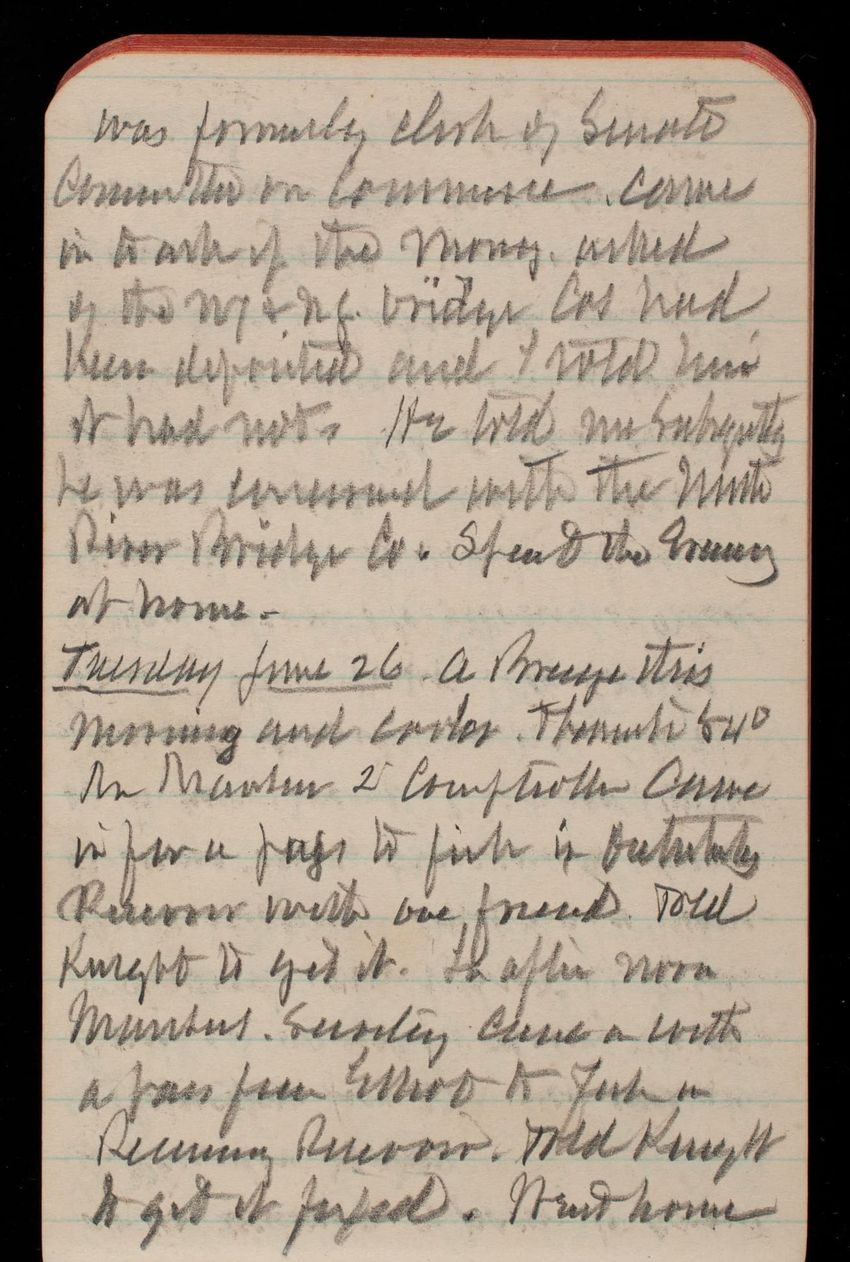 was formerly clerk of Senate
Committee on Commerce. Came
in to ask if the money. asked
of the NY & NJ. bridge Cos had
been deposited and I told him
it had not. He told me Subsequently
he was concerned with the North
River Bridge Co. Spend the Evening
at home -
Tuesday June 26. A Breeze this
morning and cooler. Thermometer 84°
Mr 2d Comptroller Came
in for a pass to fish in
Reservoir with one friend. Told
Knight to get it. In after noon
Marshall. Secretary came in with
a pass from Elliot to Fish in
Receiving Reservoir. Told Knight
to get it fixed. Went home